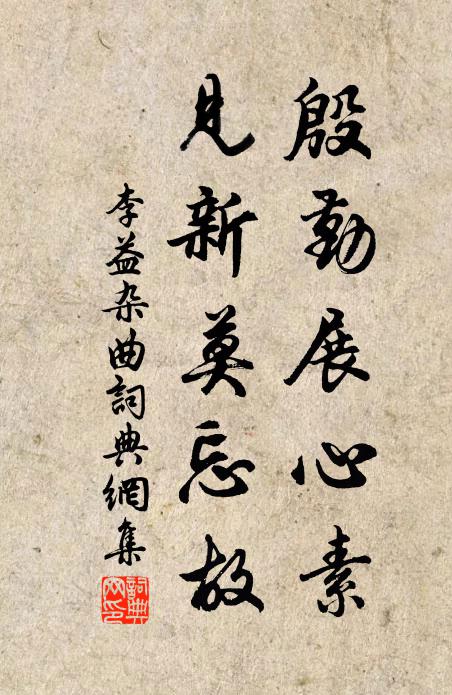 殷勤展心素
見新莫忘故
李益杂曲詞典網集
詞典网印